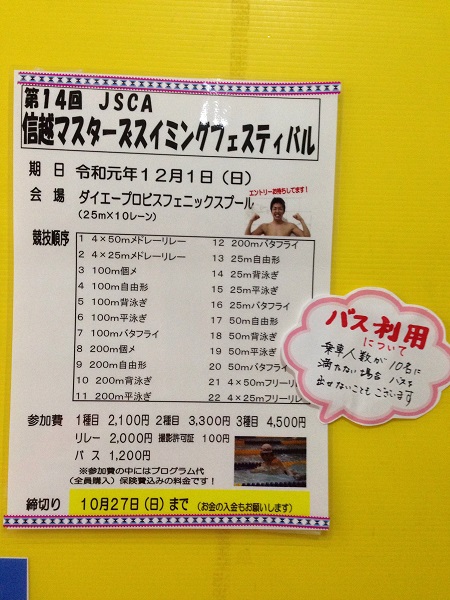 第14回 JSCA
信越マスターズスイミングフェスティバル
期 日 令和元年12月1日(日)
会 場 ダイエープロビスフェニックスプール
(25m×10レーン)
エントリーお待ちしてます!
競技順序
1 4×50mメドレーリレー
2 4×25mメドレーリレー
3 100m個メ
4 100m自由形
5 100m背泳ぎ
6 100m平泳ぎ
7 100mバタフライ
8 200m個メ
9 200m自由形
10 200m背泳ぎ
11 200m平泳ぎ
12 200mバタフライ
13 25m自由形
14 25m背泳ぎ
15 25m平泳ぎ
16 25mバタフライ
17 50m自由形
18 50m背泳ぎ
19 50m平泳ぎ
20 50mバタフライ
21 4×50mフリーリ
22 4×25mフリーリ
参加費 1種目 2,100円 2種目 3,300円 3種目 4,500円
リレー 2,000円 撮影許可証 100円
バス 1,200円
※参加費の中にはプログラム代
(全員購入)保険費込みの料金です!
締切り 10月27日(日)まで (お金の入金もお願いします)
バス利用
について
乗車人数が10名に
満たない場合 バスを
出せないこともございます